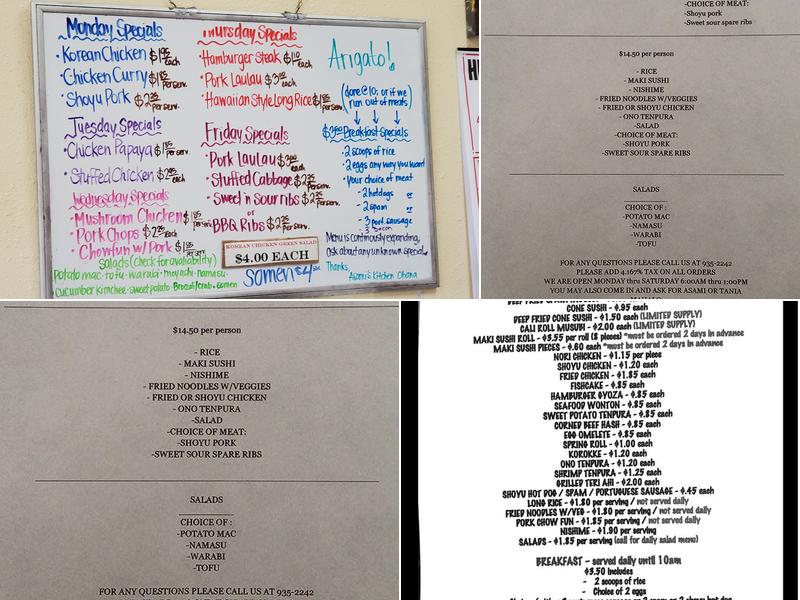 Monday Specials
• Korean Chicken $1.95 each
• Chicken Curry $1.85 per serv.
• Shoyu Pork $2.25 per serv.
Tuesday Specials
• Chicken Papaya $1.85 per serv.
• Stuffed Chicken $2.25 each
Wednesday Specials
• Mushroom Chicken $1.85 per serv.
• Pork Chops $2.25 each
• Chowfun w/ Pork $1.85 per serv.
Salads (Check for availability)
Potato mac • tofu • warabi • moyashi • namasu •
cucumber kimchee • sweet potato • • somen
Thursday Specials
• Hamburger Steak $1.10 each
• Pork Laulau $3.00 each
• Hawaiian Style Long Rice $1.85 per serv.
Friday Specials
• Pork Laulau $3.00 each
• Stuffed Cabbage $2.25 per serv.
• Sweet n Sour ribs $2.25 per serv.
or
BBQ Ribs $2.25 per serv.
KOREAN CHICKEN GREEN SALAD
$4.00 EACH
Somen $4
Arigato!
(done @ 10: or if we
run out of meats)
$3.50 Breakfast Specials
• 2 scoops of rice
• 2 eggs any way you want
• Your choice of meat
- 2 hotdogs or
- 2 spam or
- 3 port. sausage
- 3 bacon
Menu is continuously expanding,
Ask about any unknown special
Thanks,
Asami's Kitchen Ohana
-CHOICE OF MEAT:
-Shoyu pork
-Sweet sour spare ribs
$14.50 per person
- RICE
- MAKI SUSHI
- NISHIME
- FRIED NOODLES W/VEGGIES
- FRIED OR SHOYU CHICKEN
- ONO TENPURA
-SALAD
-CHOICE OF MEAT:
-SHOYU PORK
-SWEET SOUR SPARE RIBS
SALADS
CHOICE OF :
-POTATO MAC
-NAMASU
-WARABI
-TOFU
FOR ANY QUESTIONS PLEASE CALL US AT 935-2242
PLEASE ADD 4.167% TAX ON ALL ORDERS
WE ARE OPEN MONDAY thru SATURDAY 6:00AM thru 1:00PM
YOU MAY ALSO COME IN AND ASK FOR ASAMI OR TANIA
MAHALO
$14.50 per person
- RICE
- MAKI SUSHI
- NISHIME
- FRIED NOODLES W/VEGGIES
- FRIED OR SHOYU CHICKEN
- ONO TENPURA
-SALAD
-CHOICE OF MEAT:
-SHOYU PORK
-SWEET SOUR SPARE RIBS
SALADS
CHOICE OF :
-POTATO MAC
-NAMASU
-WARABI
-TOFU
FOR ANY QUESTIONS PLEASE CALL US AT 935-2242
CONE SUSHI - $.95 each
DEEP FRIED CONE SUSHI - $1.50 each (LIMITED SUPPLY)
CALI ROLL MUSUBI - $2.00 each (LIMITED SUPPLY)
MAKI SUSHI ROLL - $3.55 per roll (8 pieces) *must be ordered 2 days in advance
MAKI SUSHI PIECES - $.60 each *must be ordered 2 days in advance
NORI CHICKEN - $1.15 per piece
SHOYU CHICKEN - $1.20 each
FRIED CHICKEN - $1.85 each
FISHCAKE - $.85 each
HAMBURGER GYOZA - $.85 each
SEAFOOD WONTON - $.85 each
SWEET POTATO TENPURA - $.85 each
CORNED BEEF HASH - $.85 each
EGG OMELETE - $.85 each
SPRING ROLL - $1.00 each
KOROKKE - $1.20 each
ONO TENPURA - $1.20 each
SHRIMP TENPURA - $1.25 each
GRILLED TERI AHI - $2.00 each
SHOYU HOT DOG / SPAM / PORTUGUESE SAUSAGE - $.45 each
LONG RICE - $1.80 per serving / not served daily
FRIED NOODLES W/VEG - $1.80 per serving / not served daily
PORK CHOW FUN - $1.85 per serving / not served daily
NISHIME - $1.90 per serving
SALADS - $1.85 per serving (call for daily salad menu)
BREAKFAST - served daily until 10am
$3.50 includes
- 2 scoops of rice
- Choice of 2 eggs